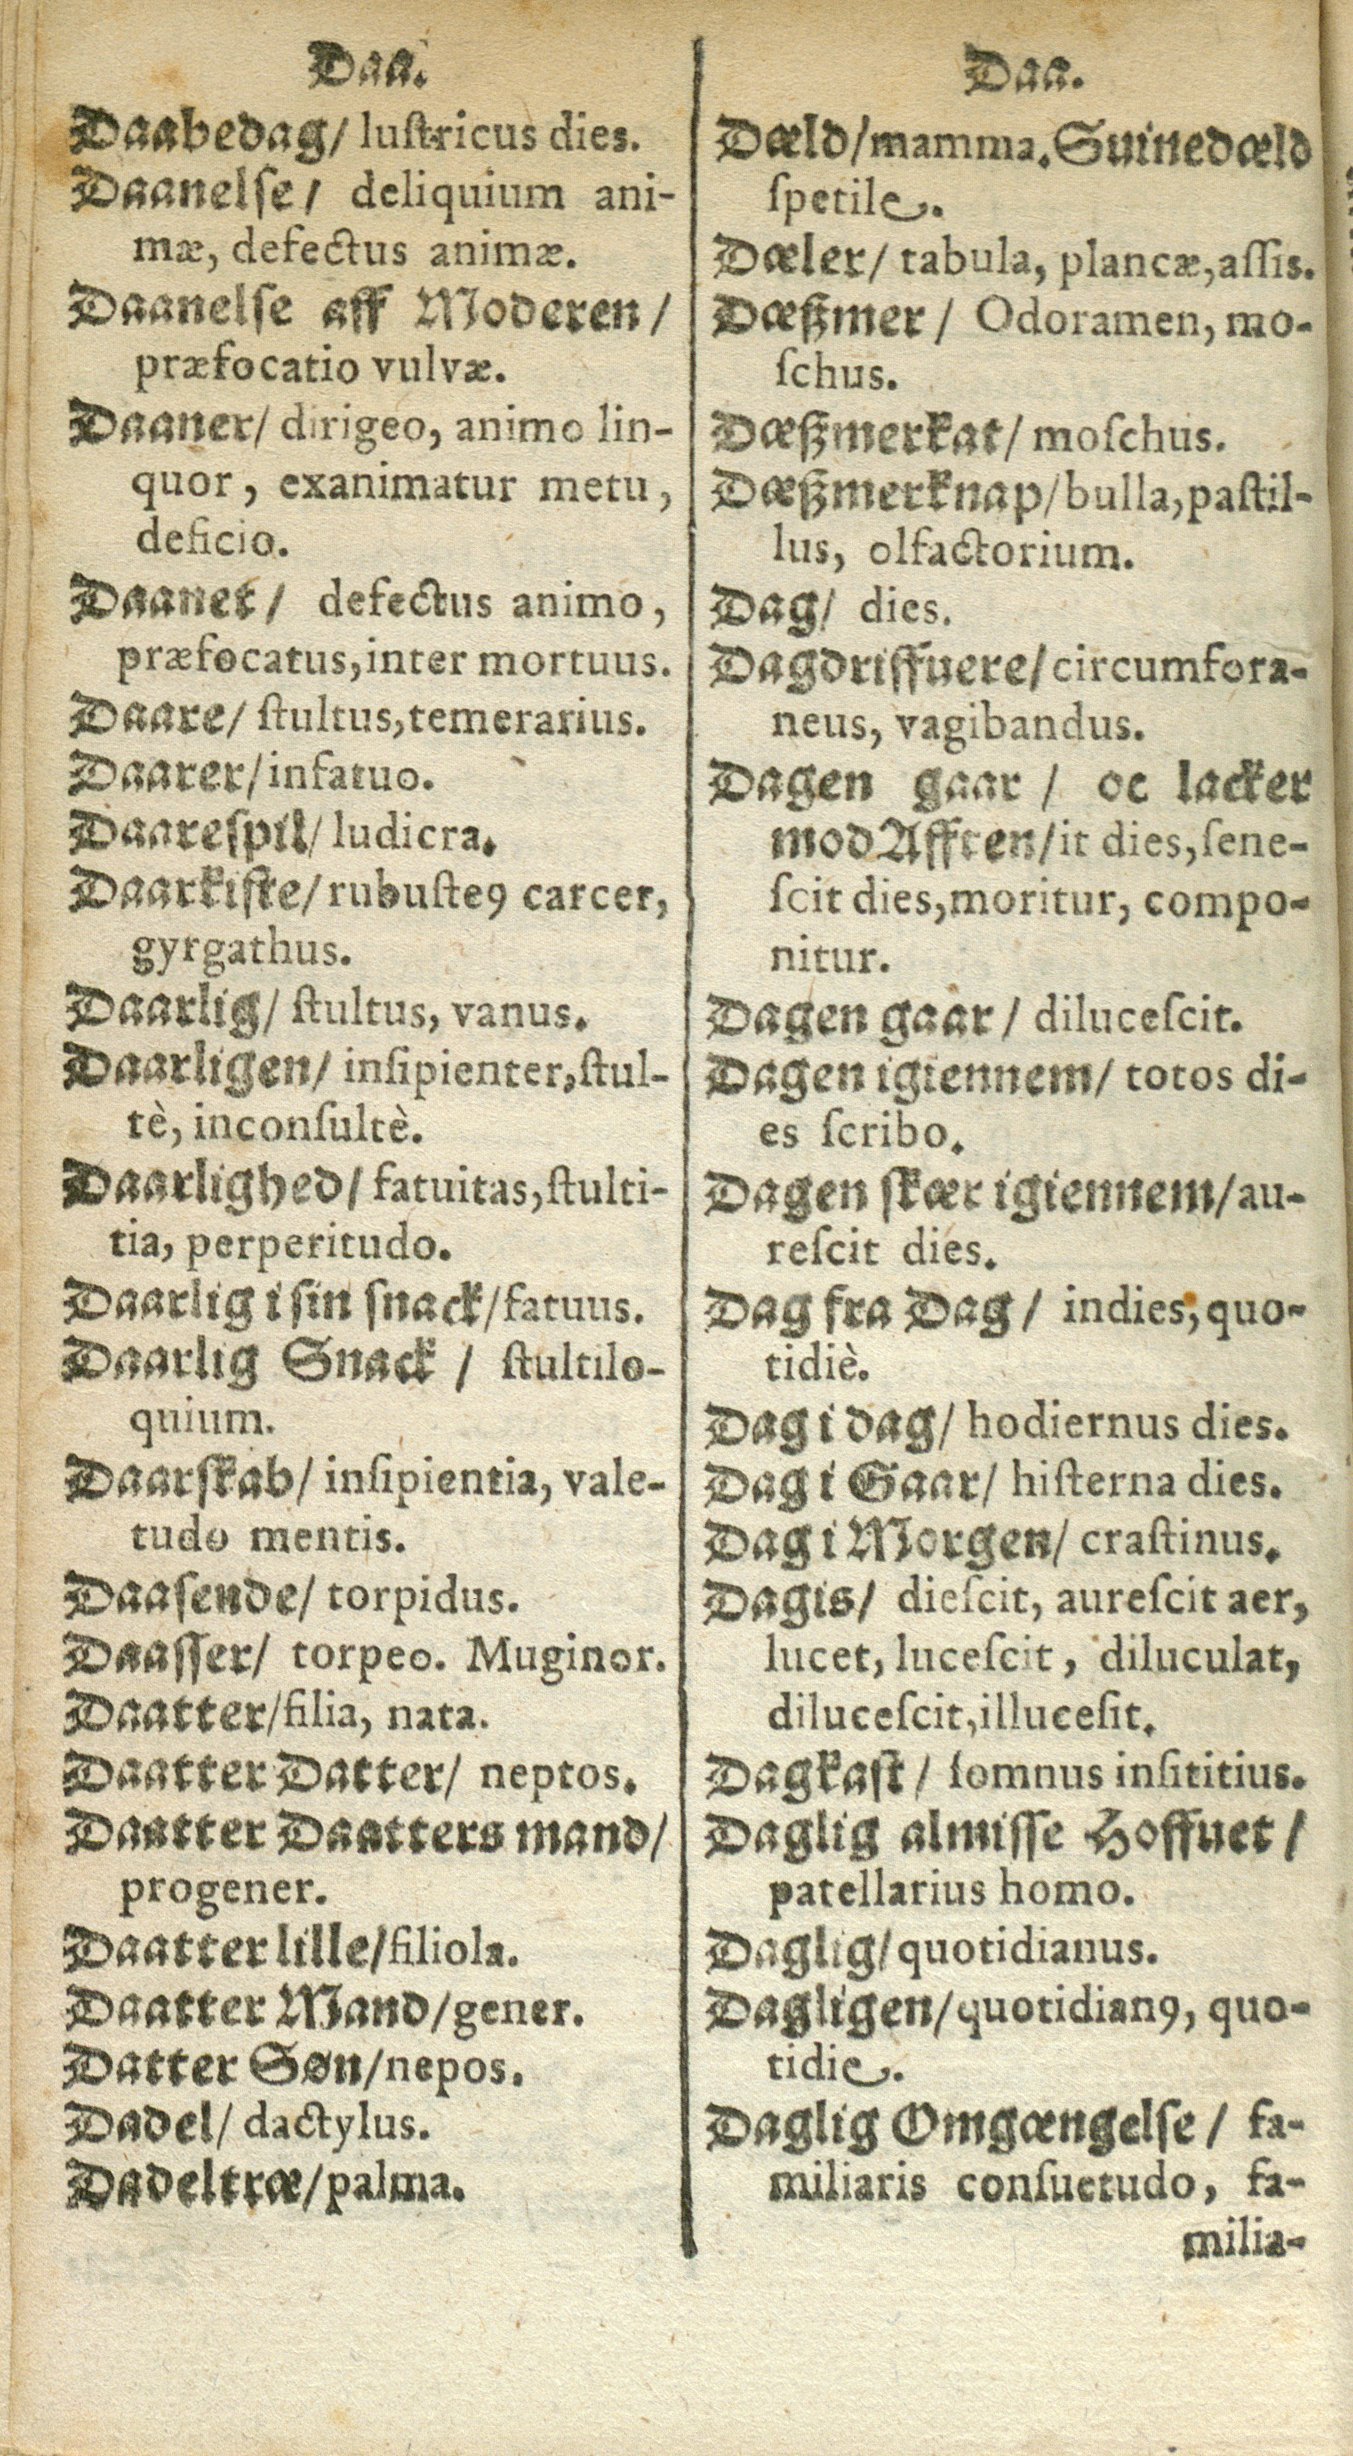 Daa.
Daabedag/ luſtricus dies.
Daanelſe/ deliquium ani-
mæ, defectus animæ.
Daanelſe aff Moderen/
præfocatio vulvæ.
Daaner/ dirigeo, animo lin-
quor, exanimatur metu,
deficio.
Daanet/ defectus animo,
præfocatus,inter mortuus.
Daare/ ſtultus,temerarius.
Daarer/infatuo.
Daareſpil/ ludicra.
Daarkiſte/ rubuſteꝰ carcer,
gyrgathus.
Daarlig/ ſtultus, vanus.
Daarligen/ inſipienter,ſtul-
tè, inconſultè.
Daarlighed/ fatuitas,ſtulti-
tia, perperitudo.
Daarlig i ſin ſnack/fatuus.
Daarlig Snack / ſtultilo-
quium.
Daarſkab/ inſipientia, vale-
tudo mentis.
Daaſende/ torpidus.
Daaſſer/ torpeo. Muginor.
Daatter/filia, nata.
Daatter Datter/ neptos.
Daatter Daatters mand/
progener.
Daatter lille/filiola.
Daatter Mand/gener.
Datter Søn/nepos.
Dadel/ dactylus.
Dadeltræ/palma.
Daa.
Dæld/mamma.Suinedæld
ſpetile.
Dæler/ tabula, plancæ,aſſis.
Dæßmer/ Odoramen, mo-
ſchus.
Dæßmerkat/ moſchus.
Dæßmerknap/bulla,paſtil-
lus, olfactorium.
Dag/ dies.
Dagdriffuere/circumfora-
neus, vagibandus.
Dagen gaar / oc lacker
mod Afften/it dies,ſene-
ſcit dies,moritur, compo-
nitur.
Dagen gaar/ diluceſcit.
Dagen igiennem/ totos di-
es ſcribo.
Dagen ſkær igiennem/au-
reſcit dies.
Dag fra Dag/ indies,quo-
tidiè.
Dag i dag/ hodiernus dies.
Dag i Gaar/ hiſterna dies.
Dag i Morgen/ craſtinus.
Dagis/ dieſcit, aureſcit aer,
lucet, luceſcit, diluculat,
diluceſcit,illuceſit.
Dagkaſt/ ſomnus inſititius.
Daglig almiſſe Hoffuet/
patellarius homo.
Daglig/quotidianus.
Dagligen/quotidianꝰ, quo-
tidie.
Daglig Omgængelſe/ fa-
miliaris conſuetudo, fa-
milia-